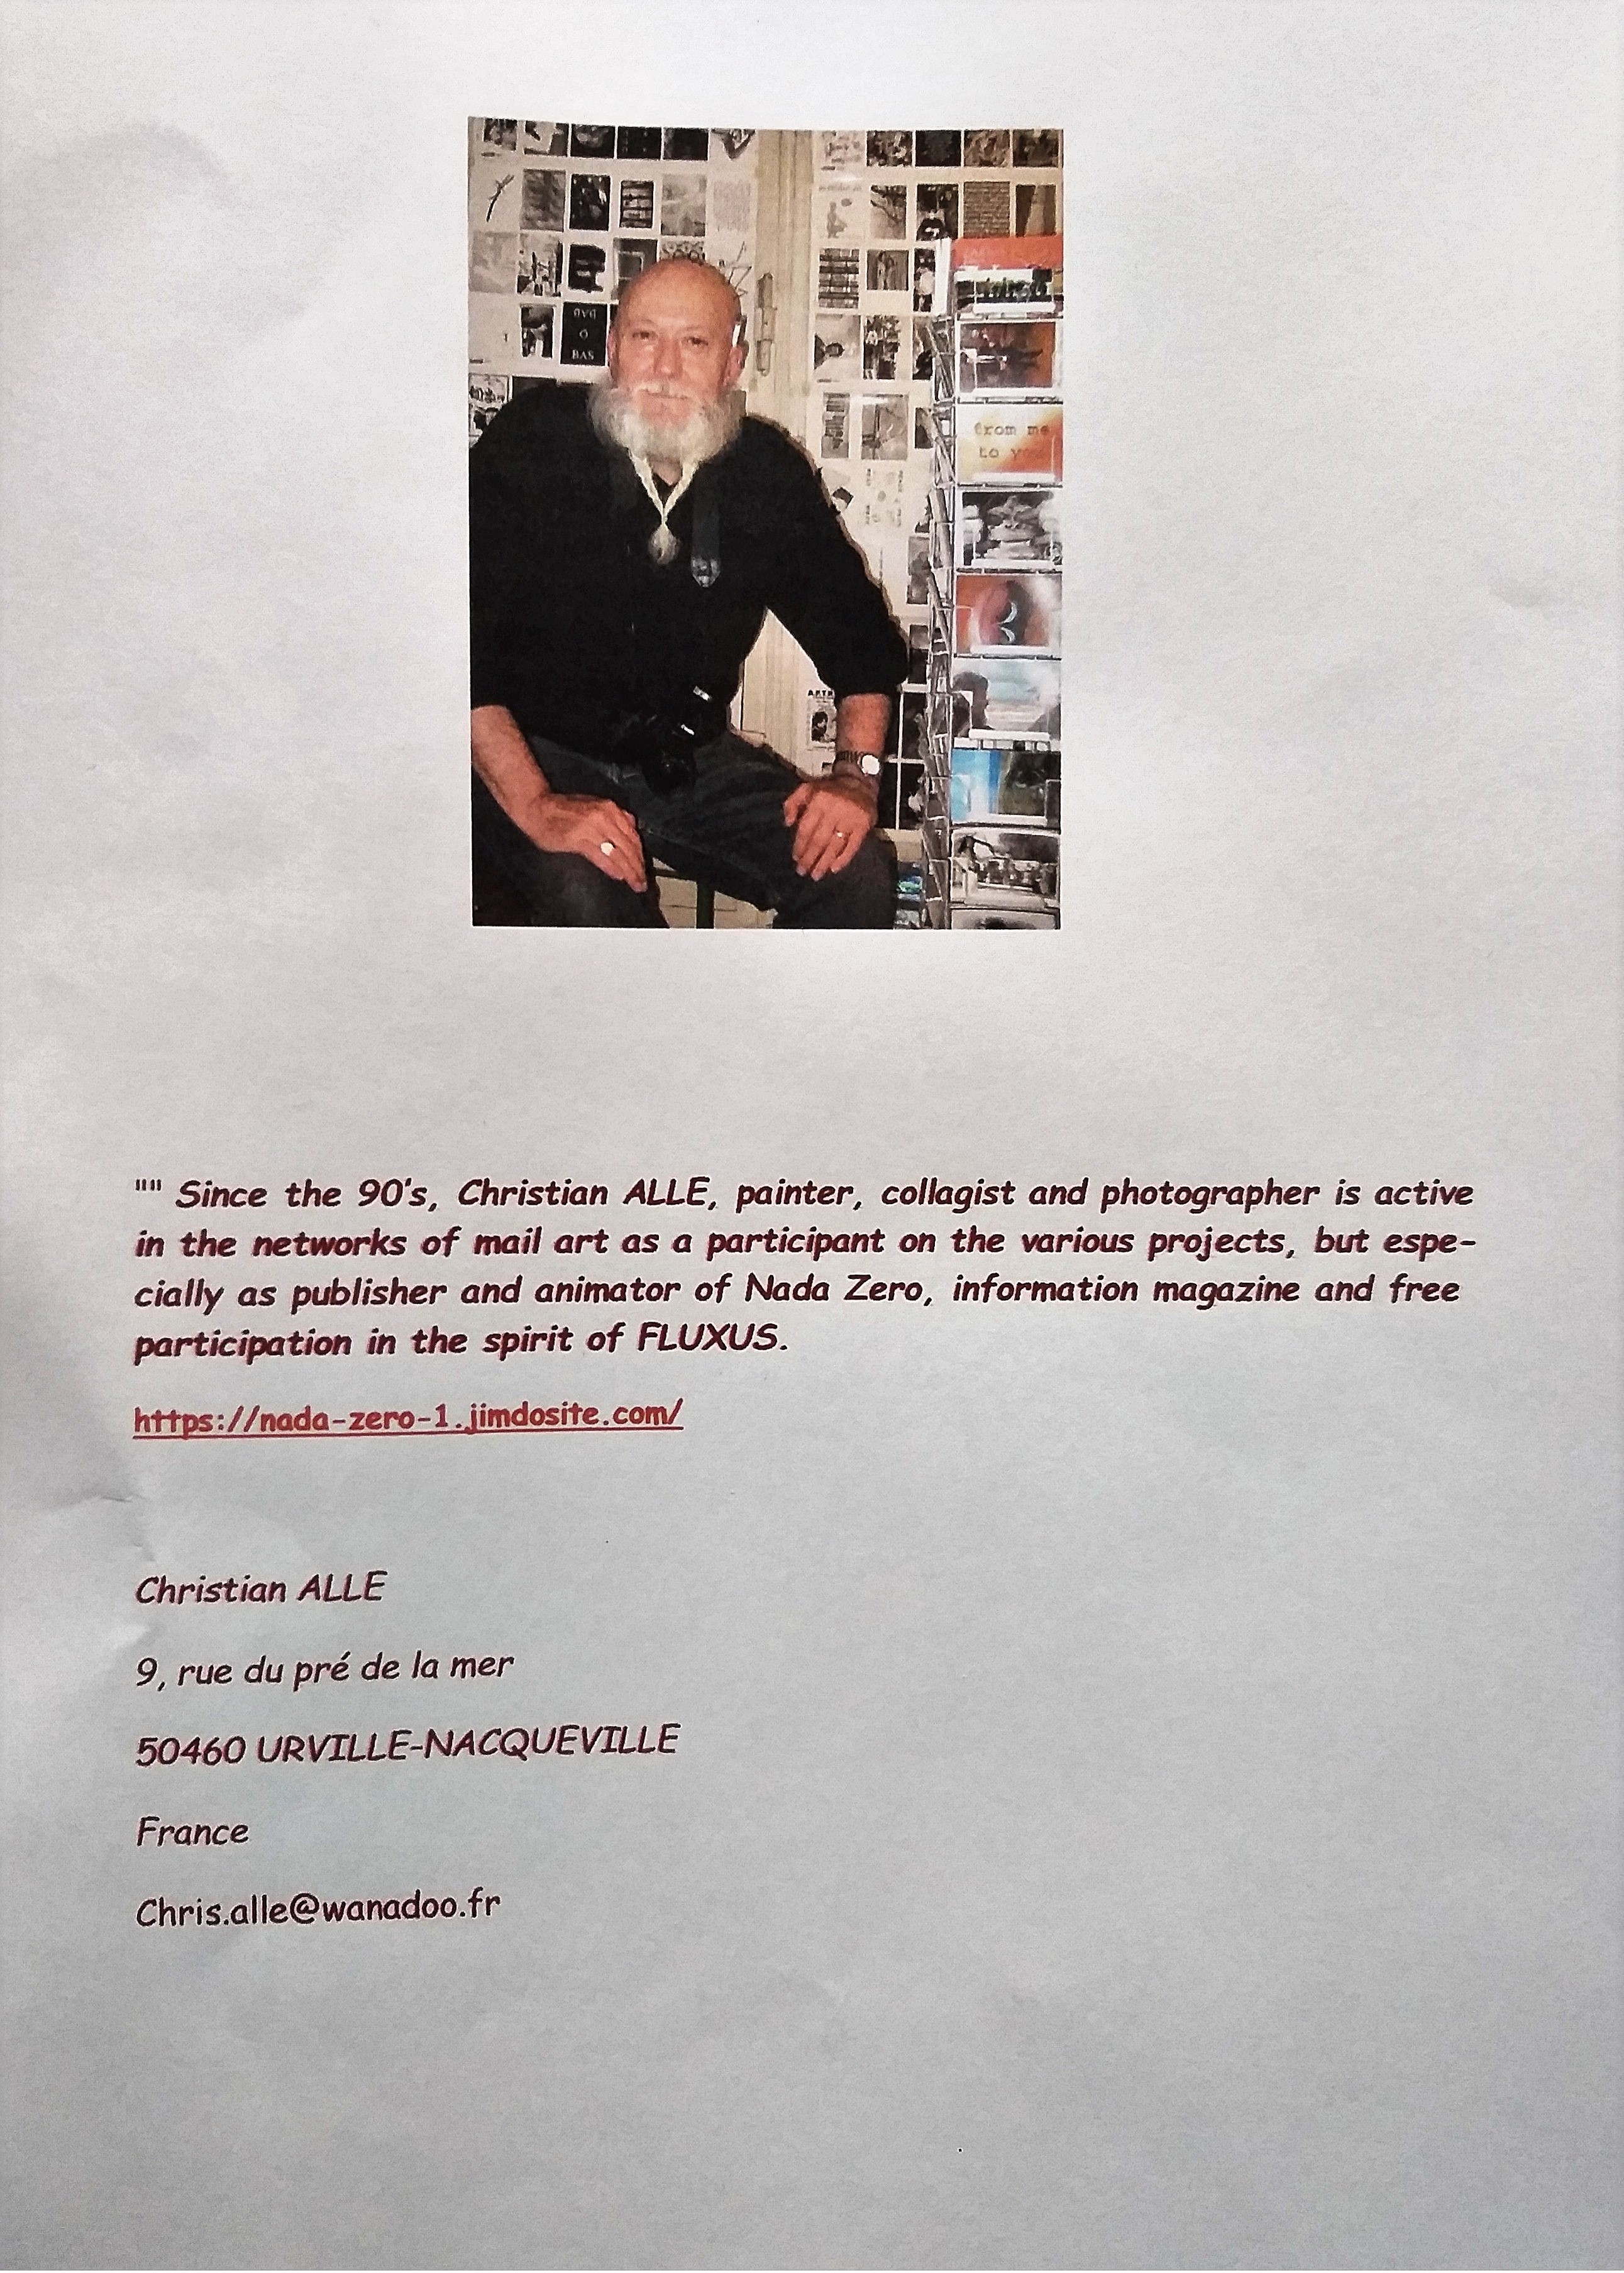 OVD
O
BAS
from me
to you
"" Since the 90's, Christian ALLE, painter, collagist and photographer is active
in the networks of mail art as a participant on the various projects, but espe-
cially as publisher and animator of Nada Zero, information magazine and free
participation in the spirit of FLUXUS.
https://nada-zero-1.jimdosite.com/
Christian ALLE
9, rue du pré de la mer
50460 URVILLE-NACQUEVILLE
France
Chris.alle@wanadoo.fr